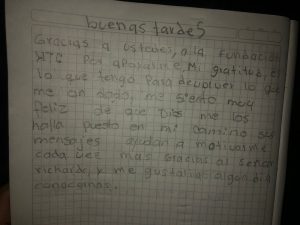 buenas tardes
Gracias a ustedes, a la Fundación
por apoyarme, Mi gratitud, es
lo que tengo para devolver lo que
me an dado, me siento muy
feliz de que Dios me los
halla puesto en mi camino sus
mensajes ayudan a motivarme
cada vez mas gracias al señor
richard y me gustaria algun dia
conocernos.